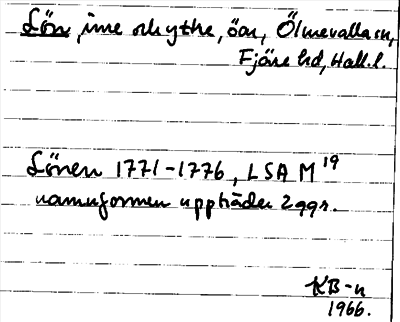 Lön, inre och ythe, öar, Ölmevalla sn,
Fjäre hd, Hall. l.
Lönen 1771-1776, LSA M 19
namnformen uppträder 2 ggr.
KB-n
1966.